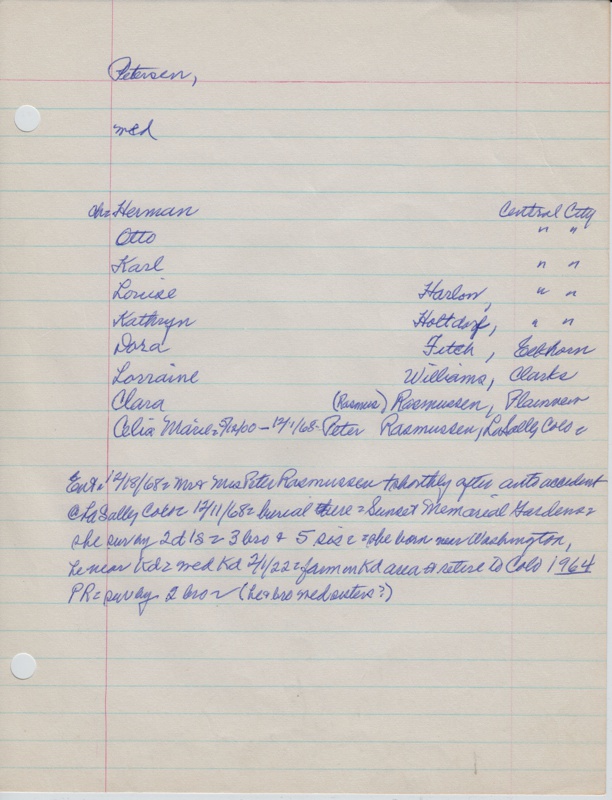 Petersen,
med
ch= Herman Central City
Otto " "
Karl " "
Louise Harlon, " "
Kathryn Holtdorf, " "
Dora Fitch, Elkhorn
Lorraine Williams, Clarks
Clara (Rasmus) Rasmussen, Plainview
Celia Marie= 5/12/00 – 12/1/68= Peter Rasmussen, LaSally Colo=
Ent= 12/18/68= Mr & Mrs Peter Rasmussen + shortly after auto accident
@ LaSally Colo= 12/11/68= burial there= Sunset Memorial Gardens=
she surv by 2d 1s = 3 bro & 5 sis = she born near Washington,
he near Kd= med Kd 2/1/22= farm in Kd area & retire to Colo 1964
PR= surv by 2 bro= (he & bro med sisters?)